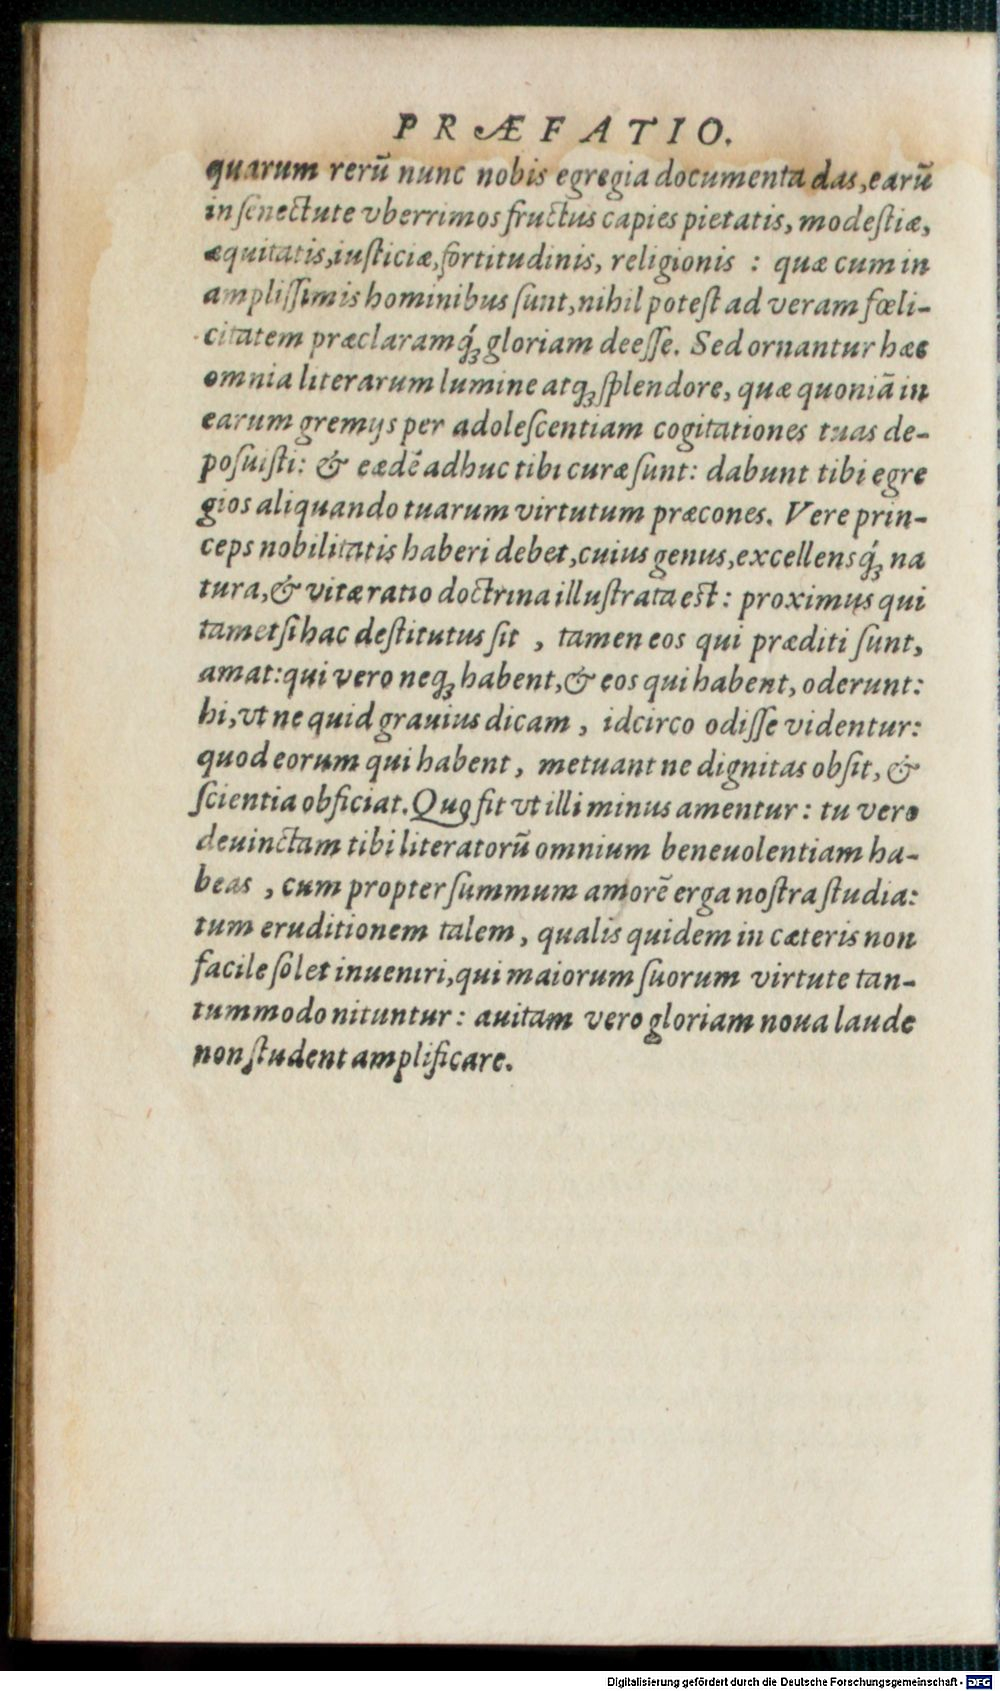 PRÆFATIO.
quarum rerũ nunc nobis egregia documenta das, earũ
in ſenectute vberrimos fructus capies pietatis, modeſtiæ,
æquitatis, iuſticiæ, fortitudinis, religionis : quæ cum in
ampliſſimis hominibus ſunt, nihil poteſt ad veram fœli-
citatem præclaramq́ꝫ gloriam deeſſe. Sed ornantur hæc
omnia literarum lumine atqꝫ ſplendore, quæ quoniã in
earum gremijs per adoleſcentiam cogitationes tuas de-
poſuiſti: & eædẽ adhuc tibi curæ ſunt: dabunt tibi egre
gios aliquando tuarum virtutum præcones. Vere prin-
ceps nobilitatis haberi debet, cuius genus, excellensq́ꝫ na
tura, & vitæ ratio doctrina illuſtrata eſt: proximus qui
tametſi hac deſtitutus ſit , tamen eos qui præditi ſunt,
amat: qui vero neqꝫ habent, & eos qui habent, oderunt:
hi, vt ne quid grauius dicam , idcirco odiſſe videntur:
quod eorum qui habent , metuant ne dignitas obſit, &
ſcientia obficiat. Quo fit vt illi minus amentur : tu vero
deuinctam tibi literatorũ omnium beneuolentiam ha-
beas , cum propter ſummum amorẽ erga noſtra ſtudia:
tum eruditionem talem , qualis quidem in cæteris non
facile ſolet inueniri, qui maiorum ſuorum virtute tan-
tummodo nituntur : auitam vero gloriam noua laude
non ſtudent amplificare.
Digitalisierung gefördert durch die Deutsche Forschungsgemeinschaft - DFG